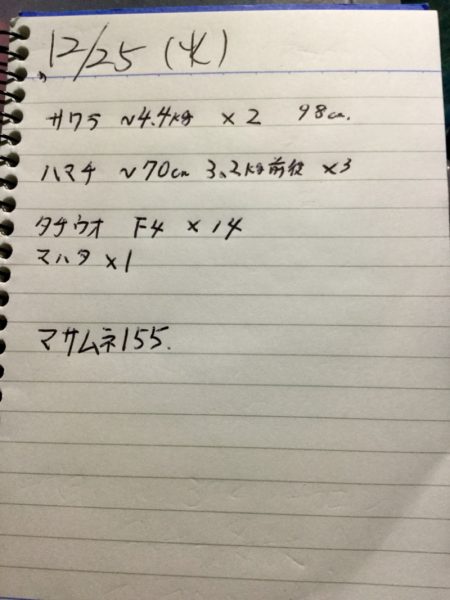 12/25 (水)
サワラ ~4.4kg ×2 98cm.
ハマチ ~70cm 3.2kg前後 ×3
タチウオ F4 ×14
マハタ ×1
マサムネ155.